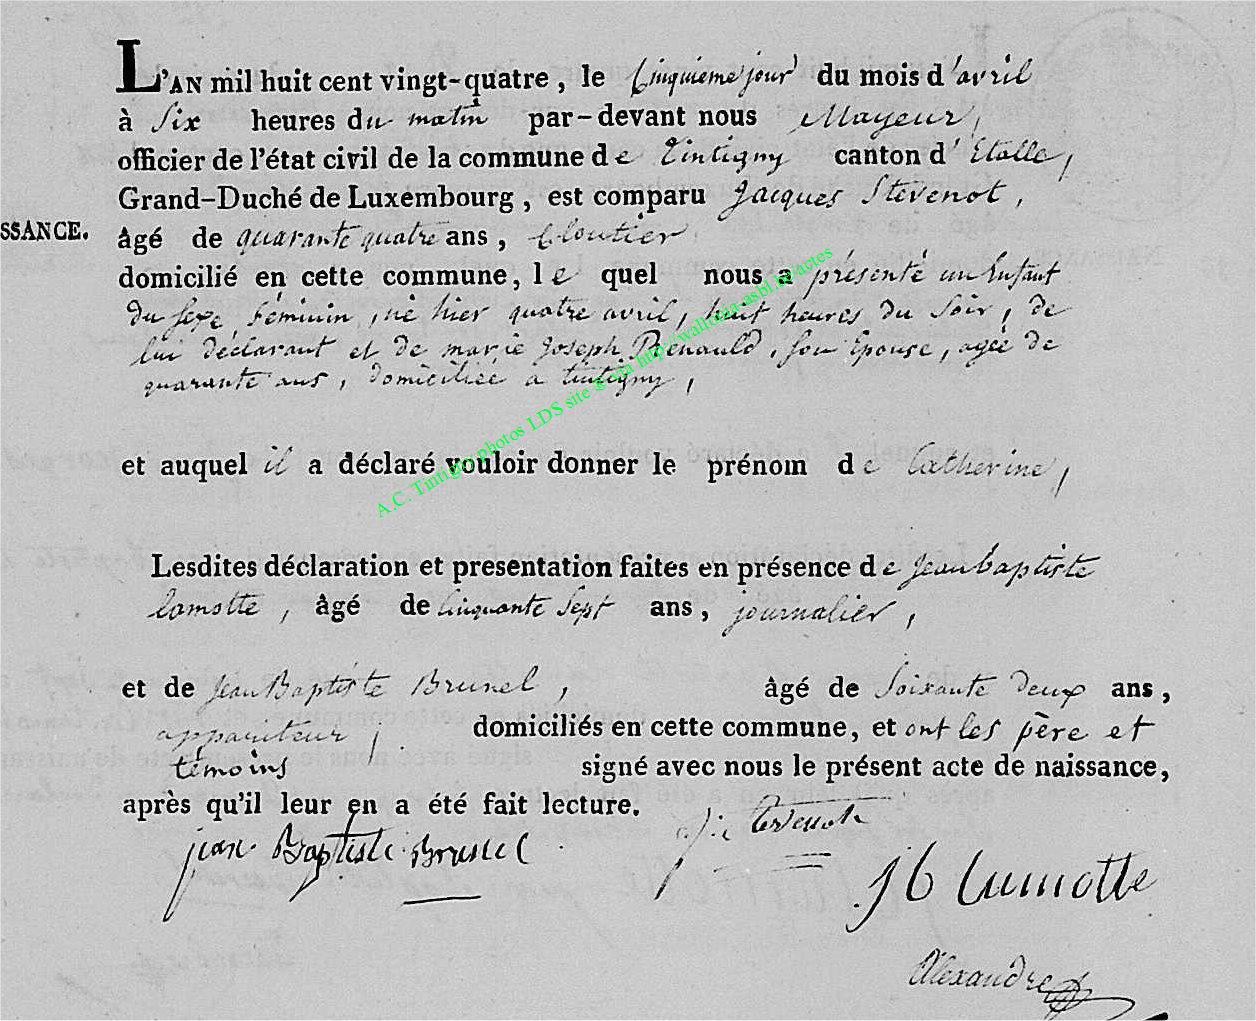 L'AN mil huit cent vingt-quatre, le Cinquieme jour du mois d'avril
à Six heures du matin par-devant nous Mayeur,
officier de l'état civil de la commune de Tintigny canton d'Etalle,
Grand-Duché de Luxembourg, est comparu Jacques Stevenot,
SSANCE.
âgé de quarante quatre ans, Cloutier,
domicilié en cette commune, le quel nous a présenté un Enfant
du sexe féminin, né hier quatre avril, huit heures du Soir, de
lui déclarant et de marie Joseph Renauld, son Epouse, agée de
quarante ans, domiciliée a tintigny,
et auquel il a déclaré vouloir donner le prénom de Catherine,
A.C. Tintigny photos LDS site & via http://wallonia-asbl.be/actes
Lesdites déclaration et presentation faites en présence de Jean baptiste
lamotte, âgé de Cinquante Sept ans, journalier,
et de Jean Baptiste Brunel, âgé de Soixante deux ans,
appariteur, domiciliés en cette commune, et ont les père et
témoins signé avec nous le présent acte de naissance,
après qu'il leur en a été fait lecture.
jean Baptiste Brunel
J B Lamotte
Alexandre